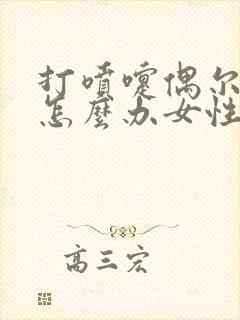 打噴嚏偶尔
怎麼办女性
高三宏